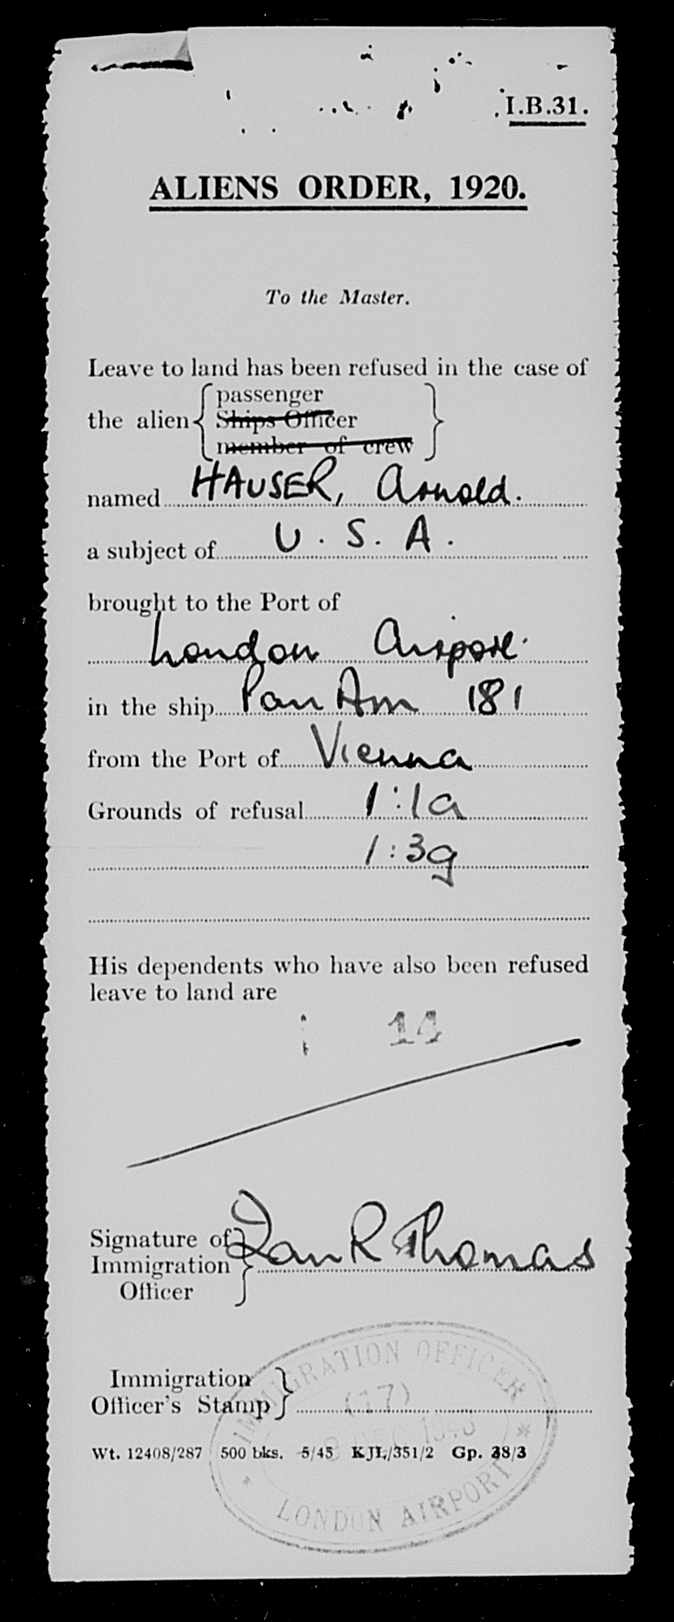 I.B.31.
ALIENS ORDER, 1920.
To the Master.
Leave to land has been refused in the case of
passenger
the alien { Ships Officer }
member of crew
named HAUSER, Arnold.
a subject of U.S.A.
brought to the Port of
London Airport.
in the ship Pan Am 181
from the Port of Vienna
Grounds of refusal 1:1a
1:3g
His dependents who have also been refused
leave to land are
14
Signature of
Immigration } Ian R Thomas
Officer
Immigration
Officer's Stamp }
IMMIGRATION OFFICER
(17)
DEC
Wt. 12408/287 500 bks. 5/45 KJL/351/2 Gp. 38/3
LONDON AIRPORT